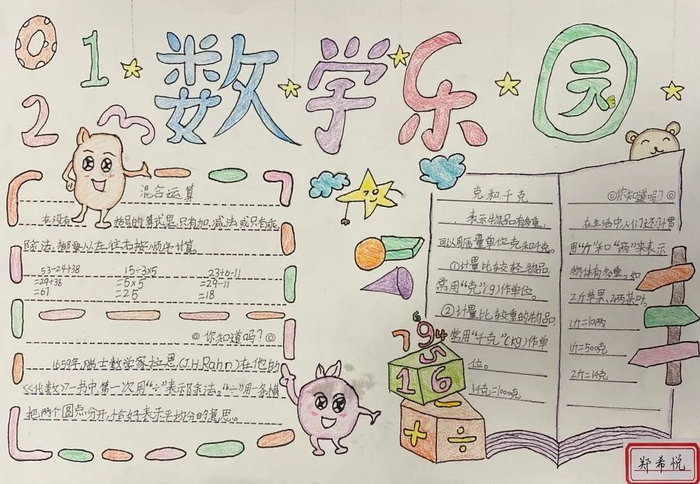 0 1 2 3
数学乐园
混合运算
在没有括号的算式里,只有加、减法或只有乘、
除法,都要从左往右按顺序计算。
53-24+38 15÷3×5 23+6-11
=29+38 =5×5 =29-11
=67 =25 =18
◎你知道吗?◎
1659年,瑞士数学家拉恩(J.H.Rahn)在他的
《代数》一书中,第一次用“÷”表示除法。“÷”用一条横线
把两个圆点分开,恰好表示平均分的意思。
克和千克
表示物品有多重,
可以用质量单位克和千克。
①计量比较轻的物品,
常用“克”(g)作单位。
②计量比较重的物品,
常用“千克”(kg)作单位。
1千克=1000克
◎你知道吗?◎
在生活中,人们还习惯
用“斤”和“两”来表示
物体有多重,如
2斤苹果、2两茶叶。
1斤=10两
1斤=500克
2斤=1千克
7 6 9
5
1 6
+ ÷
郑希悦